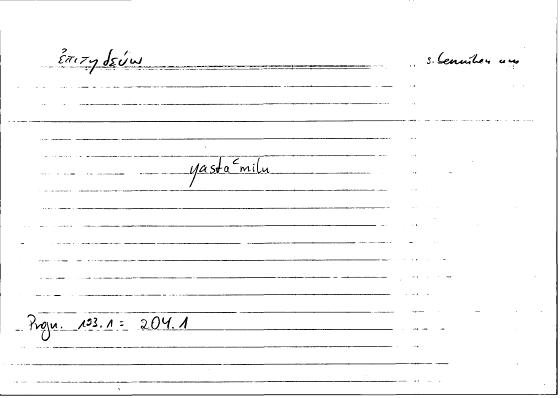 ἐπιτηδεύω s. bemühen um
yastaʿmilu
Progn. 193.1 = 204.1